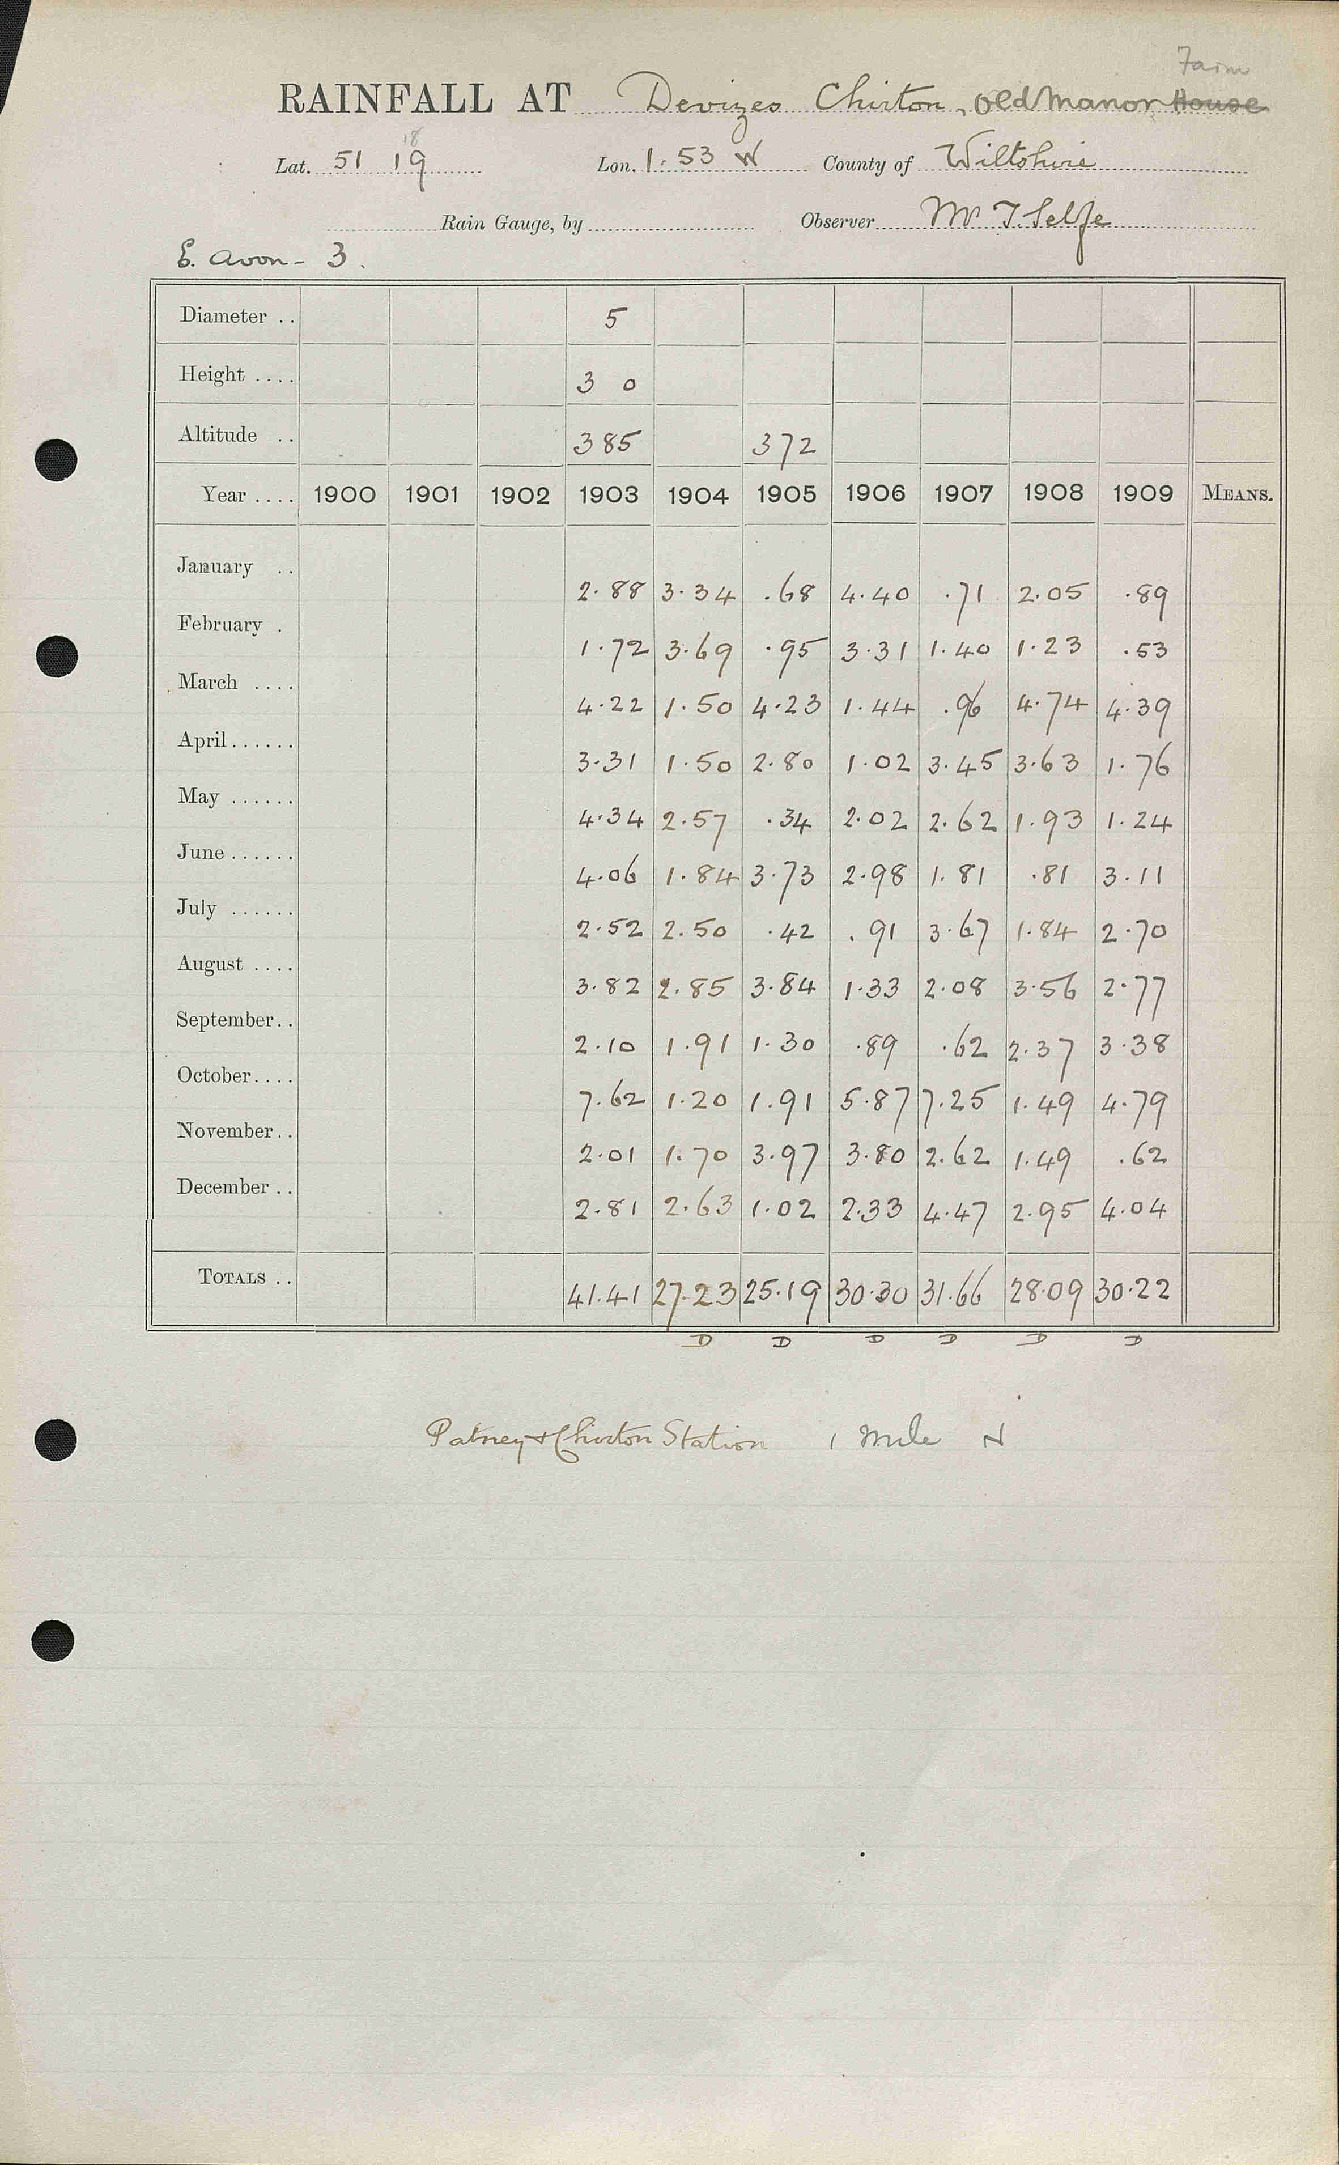 Farm
RAINFALL AT Devizes Chirton, Old Manor House
18
Lat. 51 19 Lon. 1.53 W County of Wiltshire
Rain Gauge, by Observer Mr T. Selfe
E. Avon - 3.
Diameter .. 5
Height .... 3 0
Altitude .. 385 372
Year .... 1900 1901 1902 1903 1904 1905 1906 1907 1908 1909 MEANS.
January .. 2.88 3.34 .68 4.40 .71 2.05 .89
February . 1.72 3.69 .95 3.31 1.40 1.23 .53
March .... 4.22 1.50 4.23 1.44 .96 4.74 4.39
April...... 3.31 1.50 2.80 1.02 3.45 3.63 1.76
May ...... 4.34 2.57 .34 2.02 2.62 1.93 1.24
June...... 4.06 1.84 3.73 2.98 1.81 .81 3.11
July ...... 2.52 2.50 .42 .91 3.67 1.84 2.70
August .... 3.82 2.85 3.84 1.33 2.08 3.56 2.77
September.. 2.10 1.91 1.30 .89 .62 2.37 3.38
October.... 7.62 1.20 1.91 5.87 7.25 1.49 4.79
November.. 2.01 1.70 3.97 3.80 2.62 1.49 .62
December .. 2.81 2.63 1.02 2.33 4.47 2.95 4.04
TOTALS .. 41.41 27.23 25.19 30.30 31.66 28.09 30.22
D D D D D D
Patney & Chirton Station 1 mile N